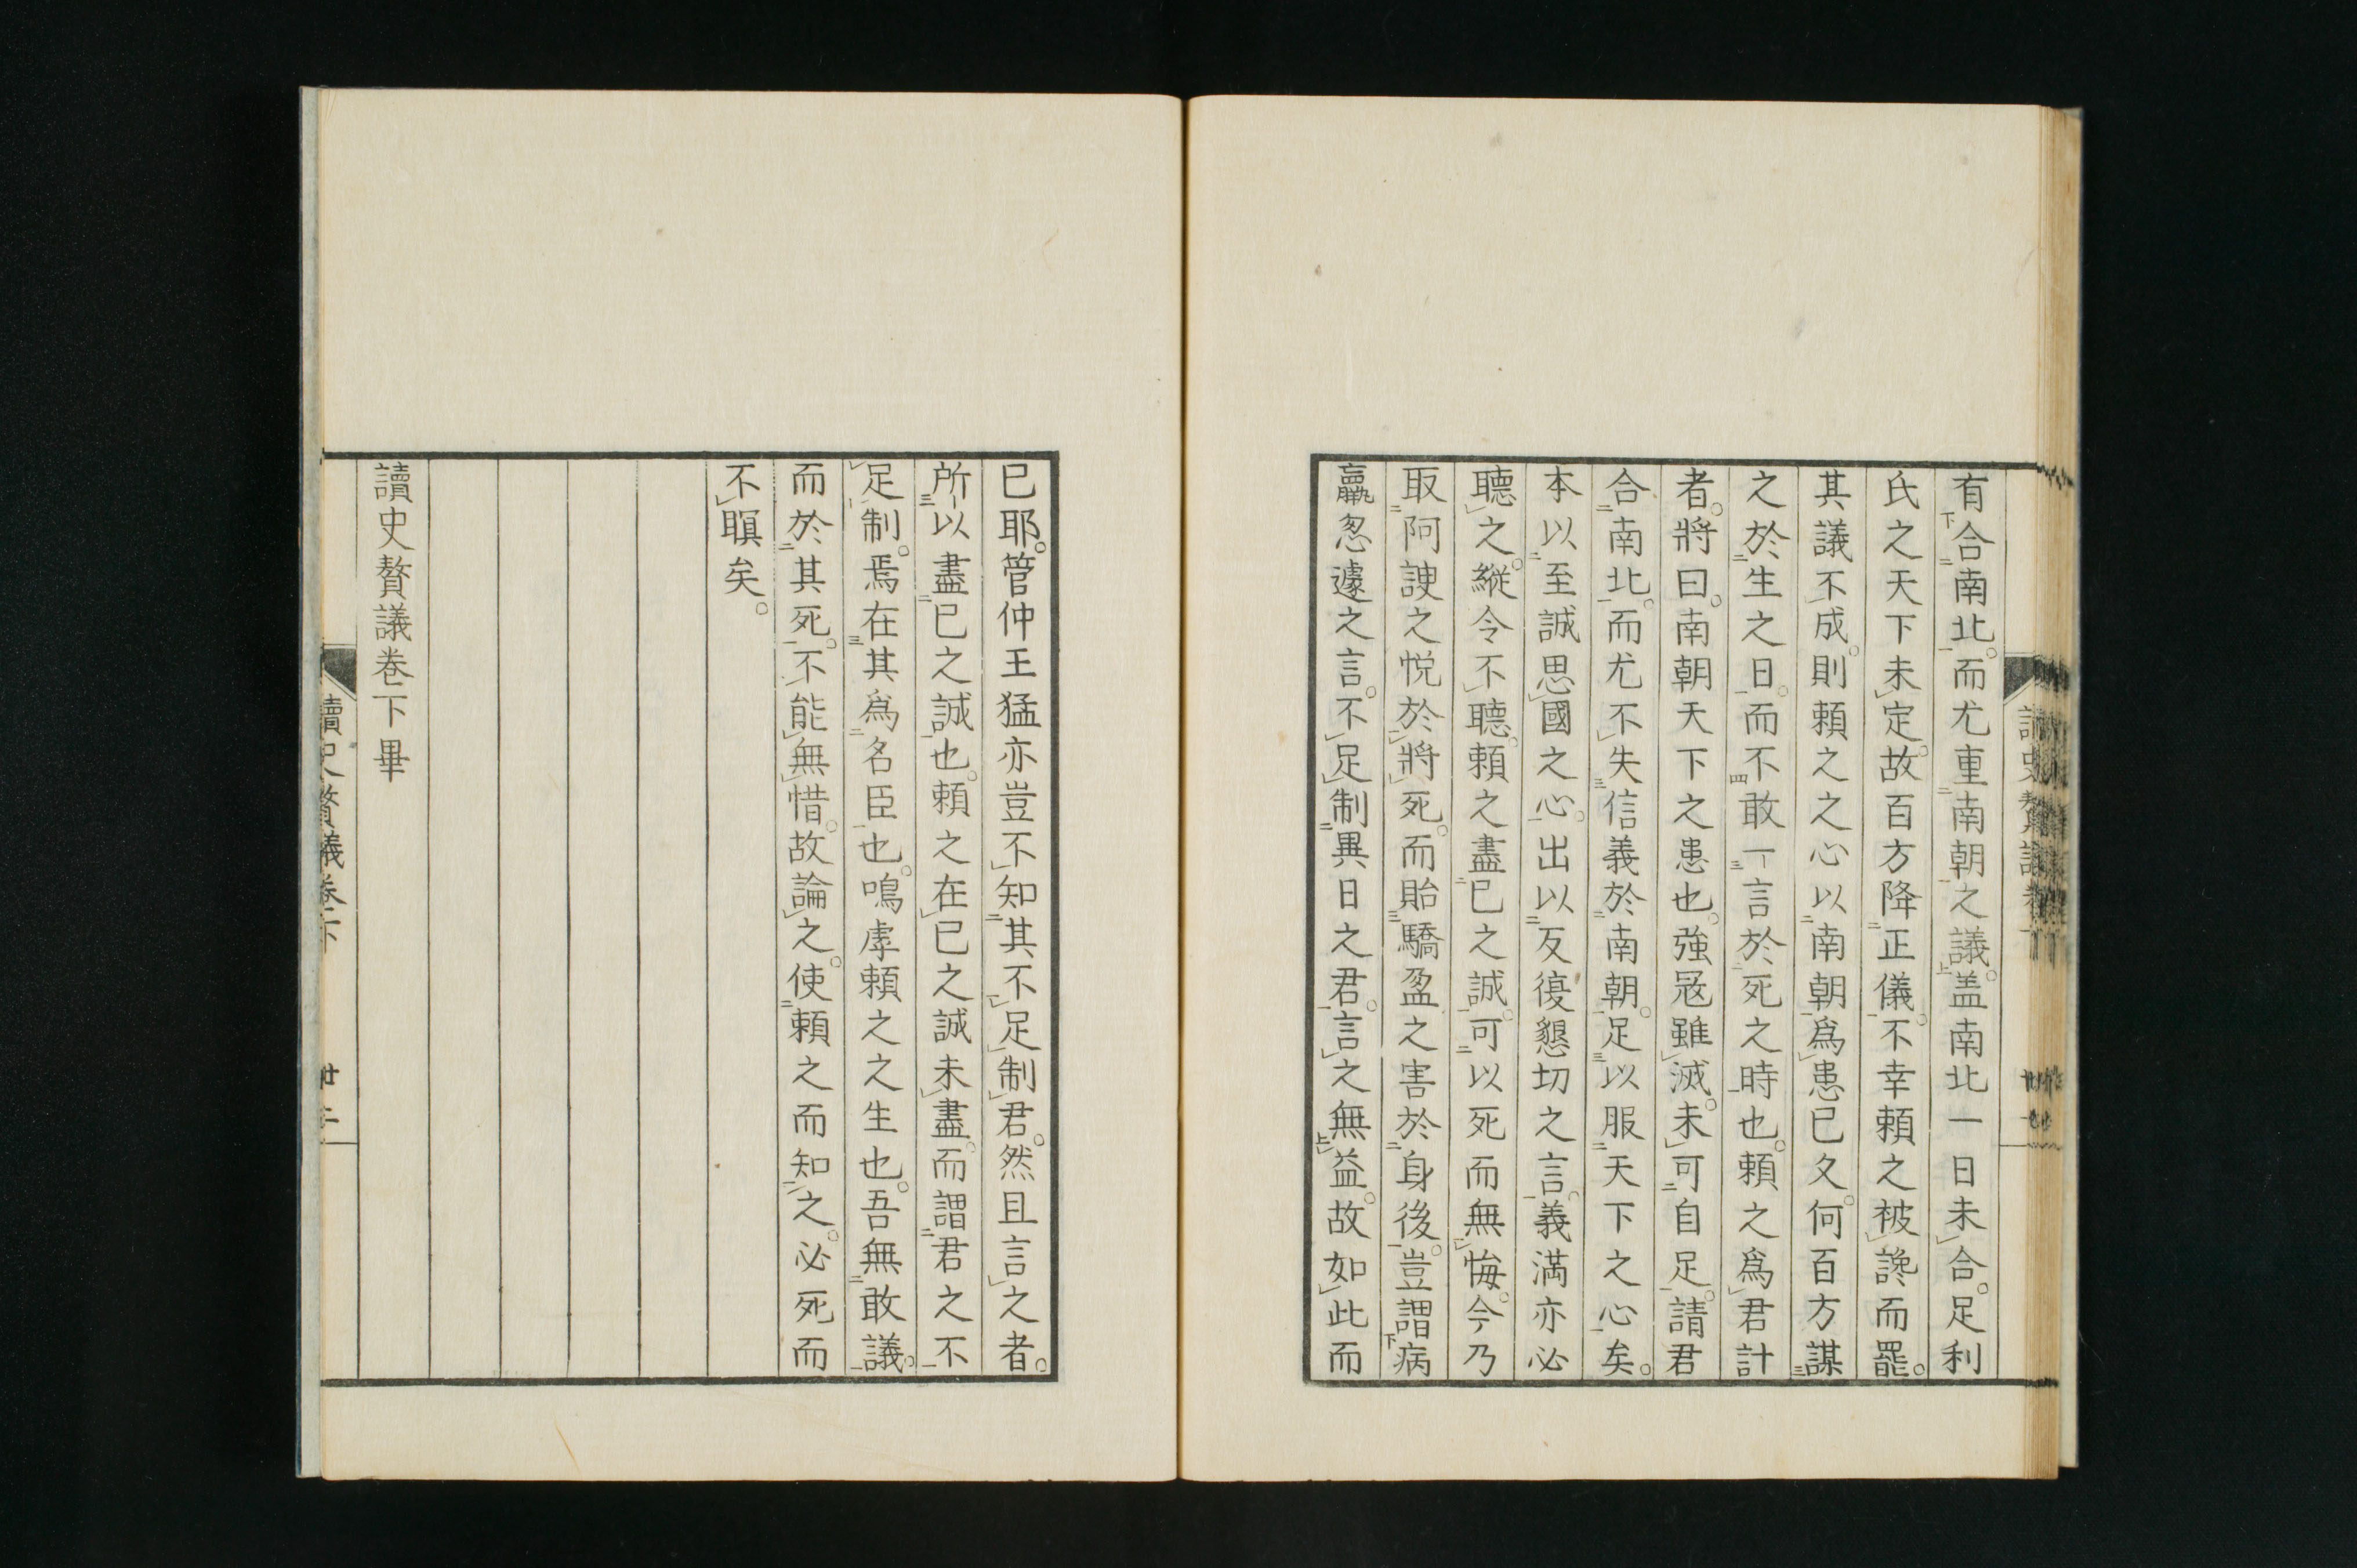 有合南北。而尤重南朝之議。盖南北一日未合。足利
氏之天下未定。故百方降正儀。不幸頼之被讒而罷。
其議不成。則頼之之心以南朝爲患已久。何百方謀
之於生之日。而不敢一言於死之時也。頼之爲君計
者。將曰。南朝天下之患也。強冦雖滅。未可自足。請君
合南北。而尤不失信義於南朝。足以服天下之心矣。
本以至誠思國之心。出以反復懇切之言。義滿亦必
聽之。縱令不聽。頼之盡已之誠。可以死而無悔。今乃
取阿諛之悦於將死。而貽驕盈之害於身後。豈謂病
羸怱遽之言。不足制異日之君。言之無益。故如此而
已耶。管仲王猛亦豈不知其不足制君。然且言之者。
所以盡已之誠也。頼之在已之誠未盡。而謂君之不
足制。焉在其爲名臣也。嗚虖頼之之生也。吾無敢議。
而於其死。不能無惜。故論之。使頼之而知之。必死而
不瞑矣。
讀史贅議卷下畢
讀史贅議卷下